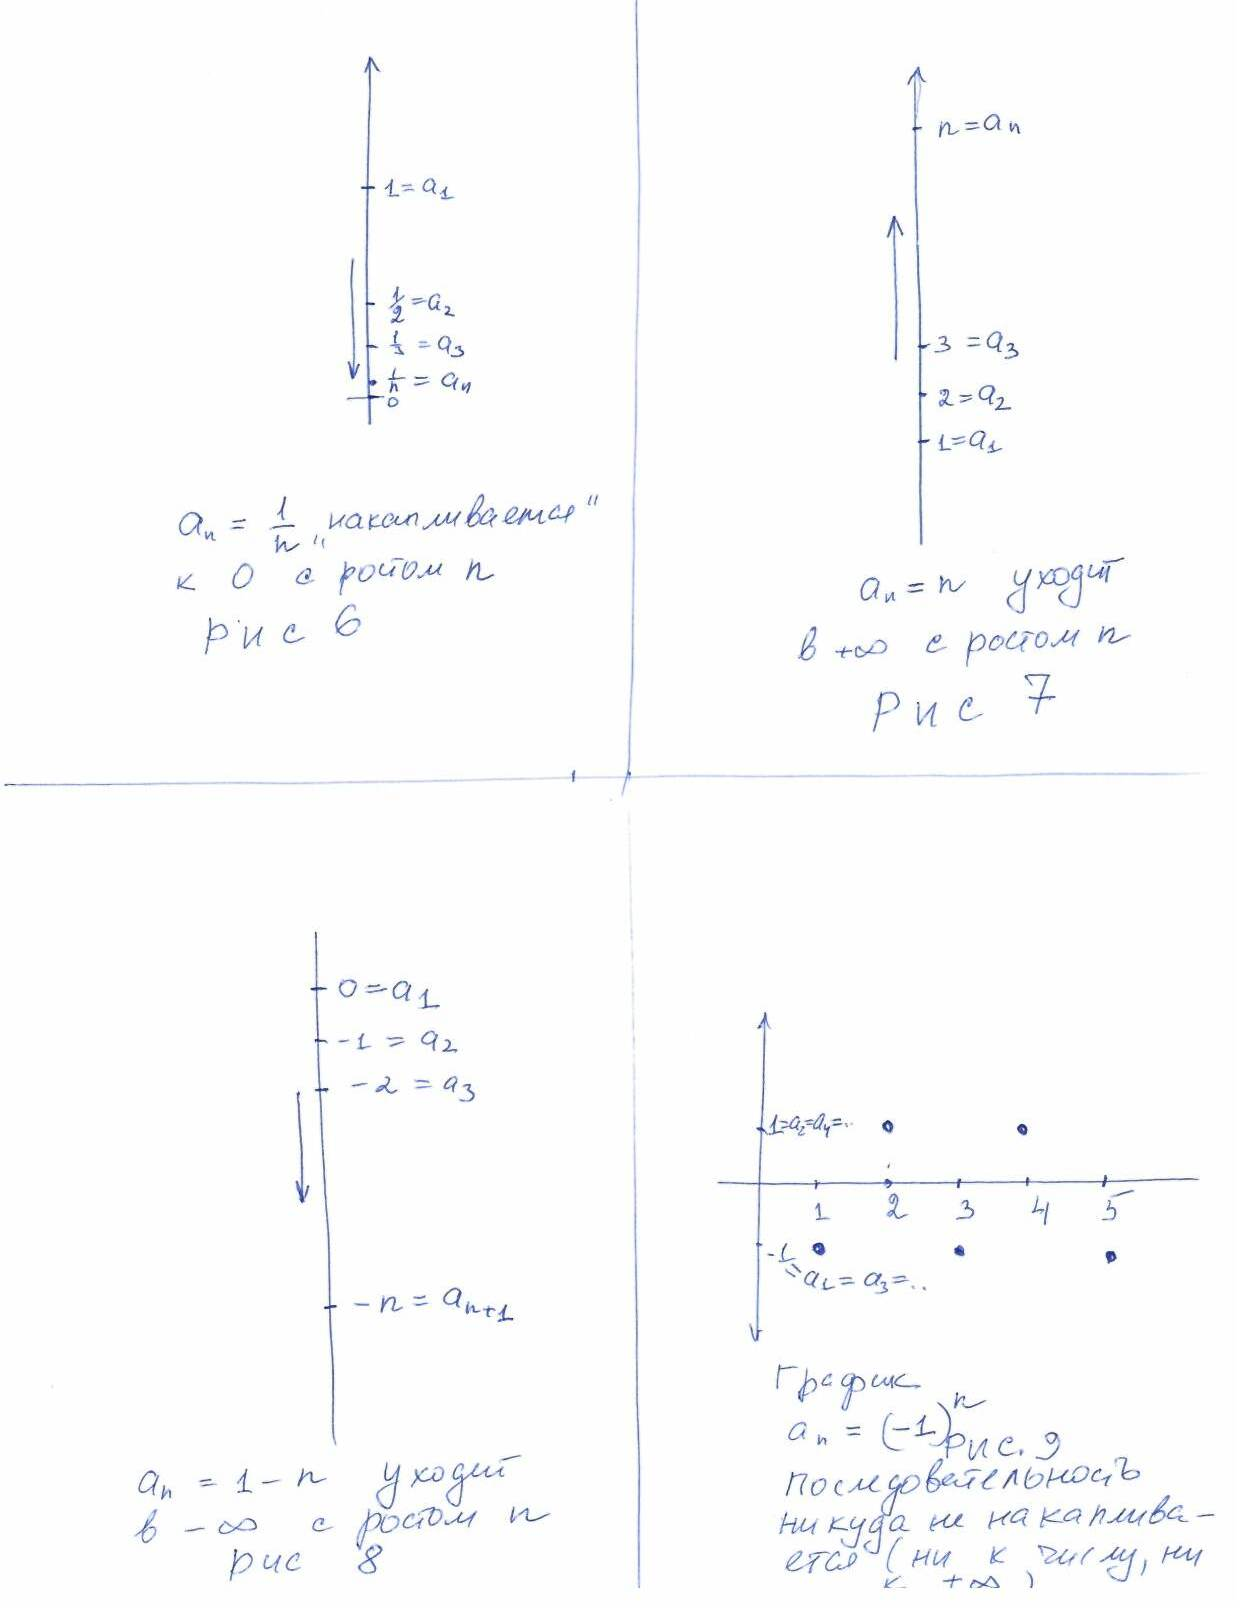 1 = a₁
1/2 = a₂
1/3 = a₃
1/n = aₙ
0
aₙ = 1/n „накапливается"
к 0 с ростом n
рис 6
n = aₙ
3 = a₃
2 = a₂
1 = a₁
aₙ = n уходит
в +∞ с ростом n
Рис 7
0 = a₁
-1 = a₂
-2 = a₃
-n = aₙ₊₁
aₙ = 1 - n уходит
в -∞ с ростом n
рис 8
1=a₂=a₄=..
1 2 3 4 5
-1
=a₁=a₃=..
График
aₙ = (-1)ⁿ рис. 9
последовательность
никуда не накаплива-
ется (ни к числу, ни